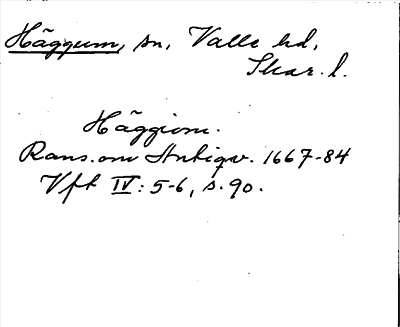 Häggum, sn, Valle hd,
Skar. l.
Häggiom.
Rans. om Antiqv. 1667-84
Vft IV: 5-6, s. 90.